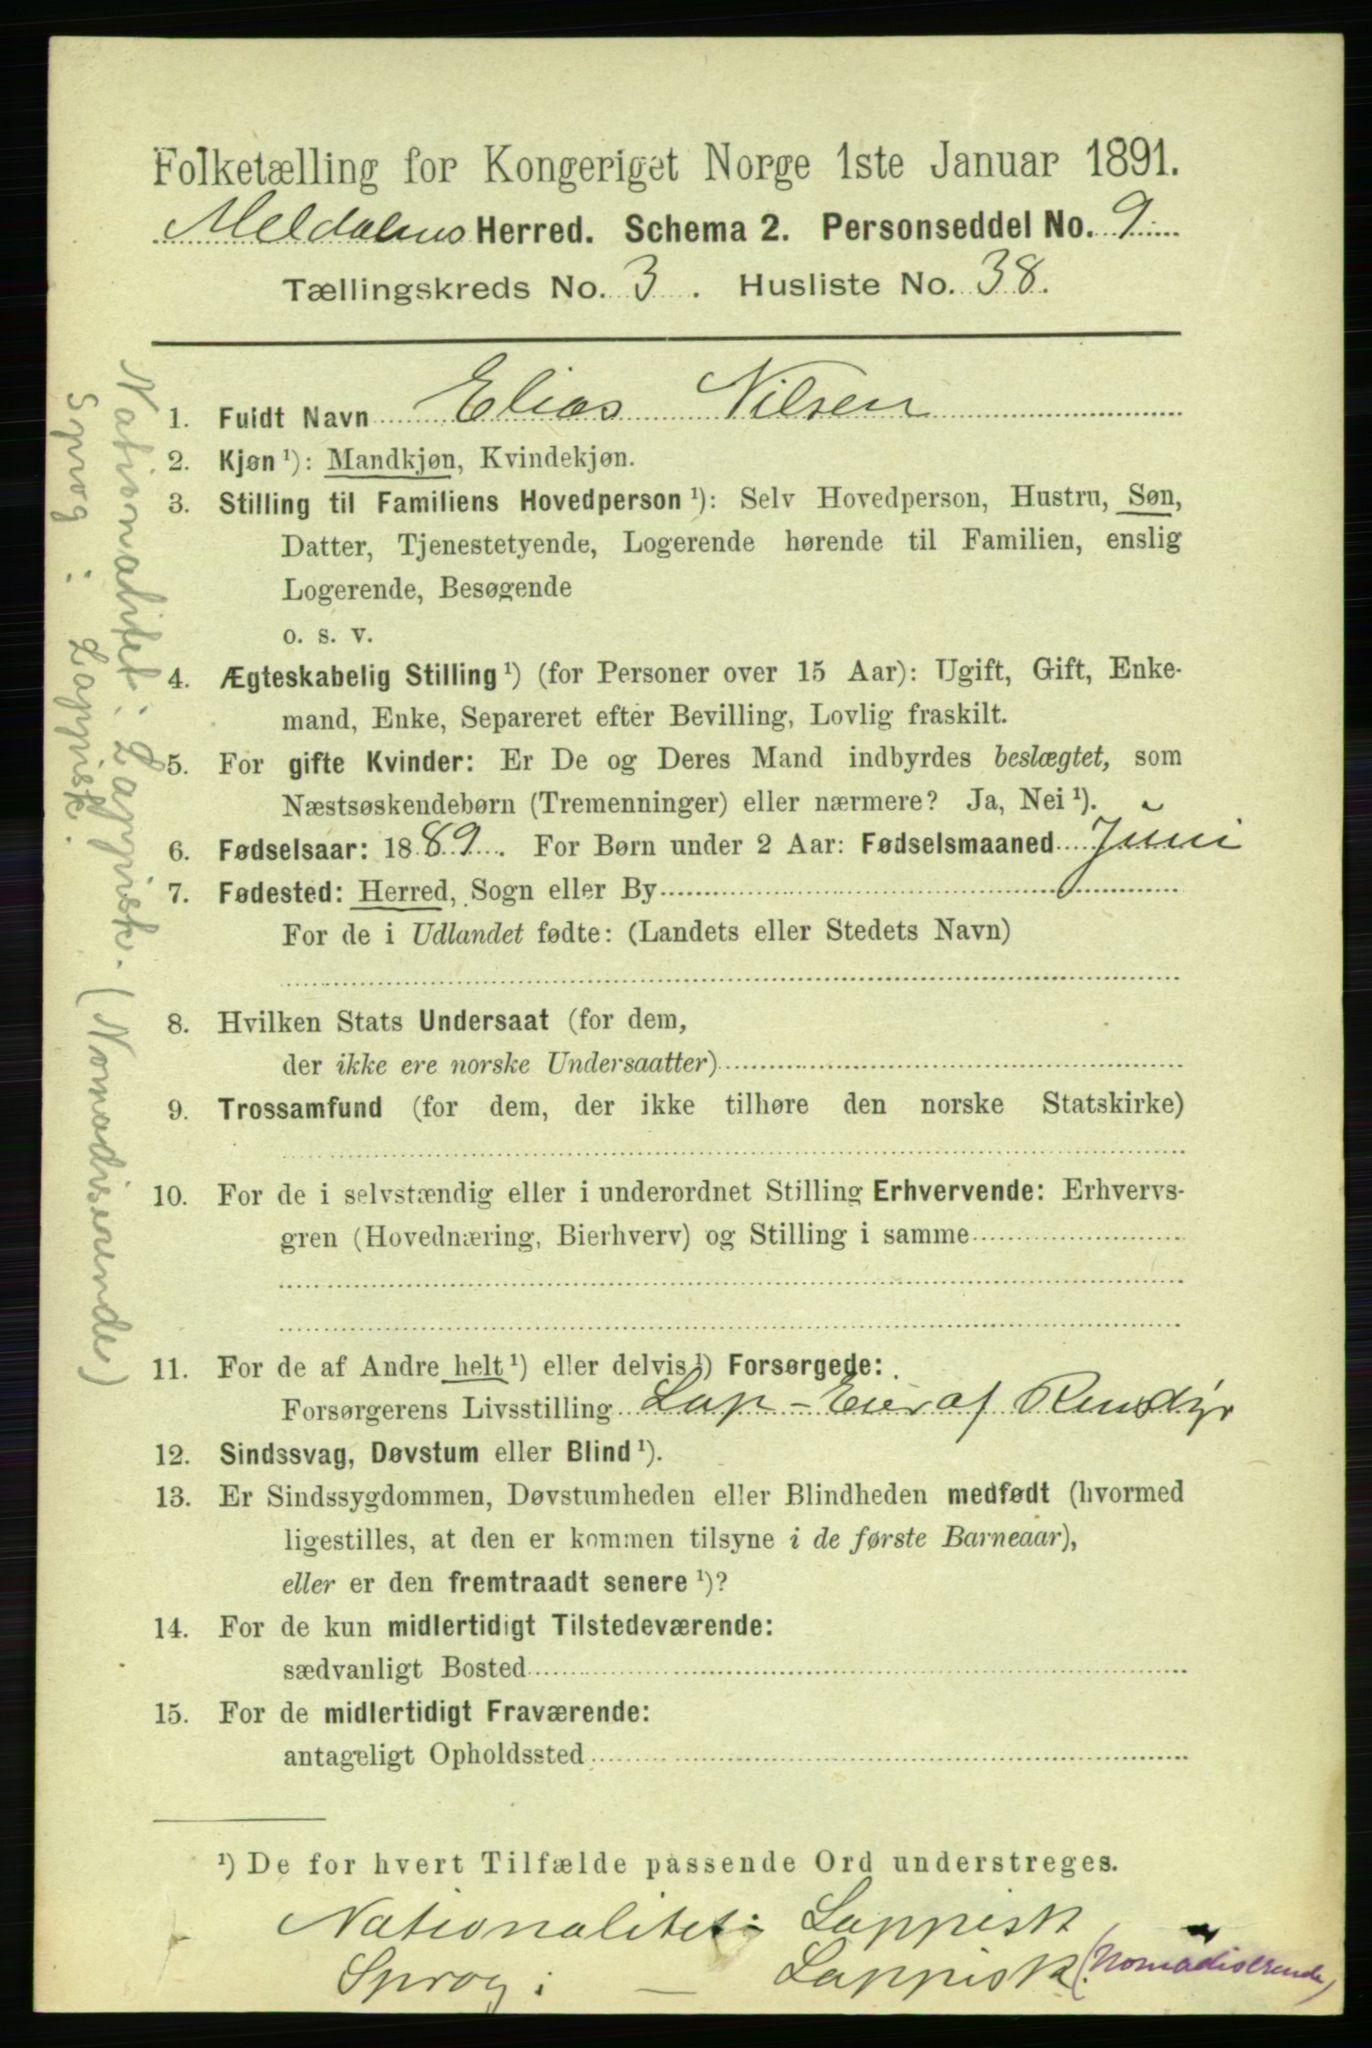 Folketælling for Kongeriget Norge 1ste Januar 1891.
Meldalens Herred. Schema 2. Personseddel No. 9
Tællingskreds No. 3. Husliste No. 38.
1. Fuldt Navn Elias Nilsen
2. Kjøn ¹): Mandkjøn, Kvindekjøn.
3. Stilling til Familiens Hovedperson ¹): Selv Hovedperson, Hustru, Søn,
Datter, Tjenestetyende, Logerende hørende til Familien, enslig
Logerende, Besøgende
o. s. v.
4. Ægteskabelig Stilling ¹) (for Personer over 15 Aar): Ugift, Gift, Enke-
mand, Enke, Separeret efter Bevilling, Lovlig fraskilt.
5. For gifte Kvinder: Er De og Deres Mand indbyrdes beslægtet, som
Næstsøskendebørn (Tremenninger) eller nærmere? Ja, Nei ¹).
6. Fødselsaar: 1889. For Børn under 2 Aar: Fødselsmaaned Juni
7. Fødested: Herred, Sogn eller By
For de i Udlandet fødte: (Landets eller Stedets Navn)
8. Hvilken Stats Undersaat (for dem,
der ikke ere norske Undersaatter)
9. Trossamfund (for dem, der ikke tilhøre den norske Statskirke)
10. For de i selvstændig eller i underordnet Stilling Erhvervende: Erhvervs-
gren (Hovednæring, Bierhverv) og Stilling i samme
11. For de af Andre helt ¹) eller delvis ¹) Forsørgede:
Forsørgerens Livsstilling Lap - Eier af Rensdyr
12. Sindssvag, Døvstum eller Blind ¹).
13. Er Sindssygdommen, Døvstumheden eller Blindheden medfødt (hvormed
ligestilles, at den er kommen tilsyne i de første Barneaar),
eller er den fremtraadt senere ¹)?
14. For de kun midlertidigt Tilstedeværende:
sædvanligt Bosted
15. For de midlertidigt Fraværende:
antageligt Opholdssted
¹) De for hvert Tilfælde passende Ord understreges.
Nationalitet: Lappisk
Sprog: — Lappisk (Nomadiserende)
Nationalitet: Lappisk. (Nomadiserende)
Sprog: Lappisk.